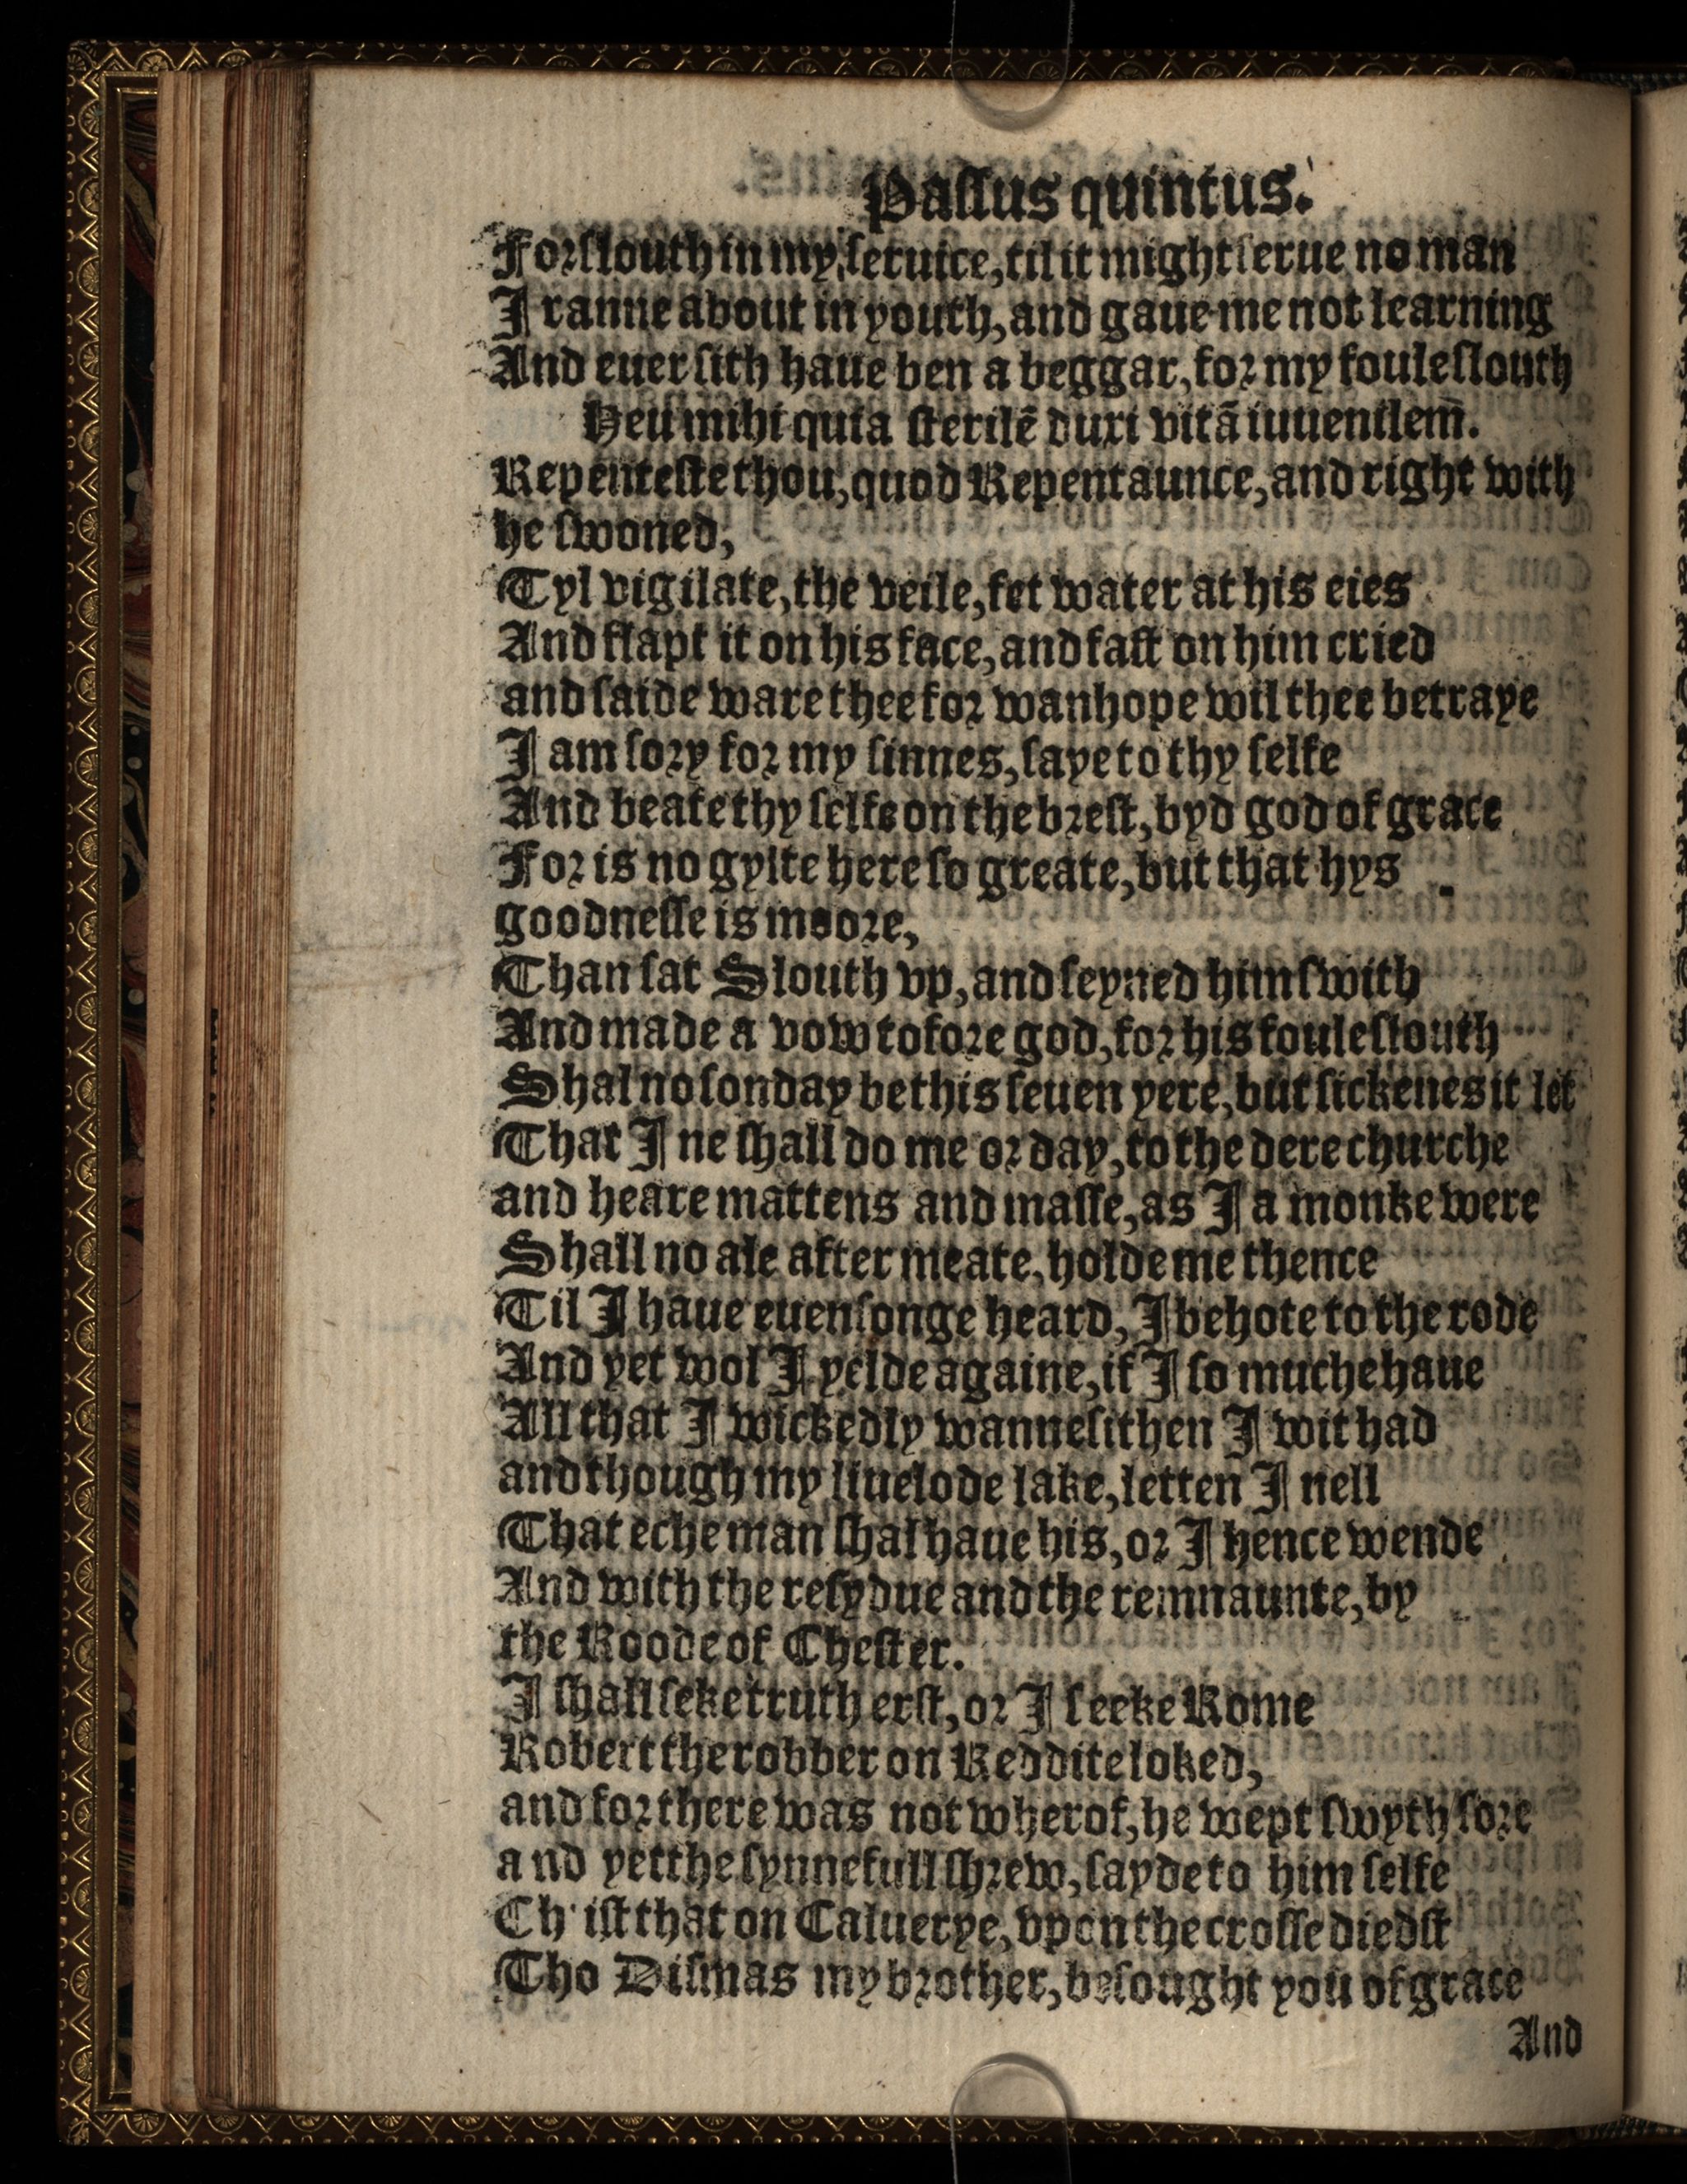 Passus quintus.
Forslouth in my seruice, til it might serue no man
I ranne about in youth, and gaue me not learning
And euer sith haue ben a beggar, for my foule slouth
Heu mihi quia sterilē duxi vitā iuuenilem.
Repenteste thou, quod Repentaunce, and right with
he swoned,
Tyl vigilate, the veile, fet water at his eies
And flapt it on his face, and fast on him cried
and saide ware thee for wanhope wil thee betraye
I am sory for my sinnes, saye to thy selfe
And beate thy selfe on the brest, byd god of grace
For is no gylte here so greate, but that hys
goodnesse is moore,
Than sat Slouth vp, and seyned him swith
And made a vow tofore god, for his foule slouth
Shal no sonday be this seuen yere, but sickenes it let
That I ne shall do me or day, to the dere churche
and heare mattens and masse, as I a monke were
Shall no ale after meate, holde me thence
Til I haue euensonge heard, I behote to the rode
And yet wol I yelde againe, if I so muche haue
All that I wickedly wanne sithen I wit had
and though my liuelode lake, letten I nell
That eche man shal haue his, or I hence wende
And with the resydue and the remnaunte, by
the Roode of Chester.
I shall seke truth erst, or I seeke Rome
Robert the robber on Reddite loked,
and for there was not wherof, he wept swyth sore
and yet the synnefull shrew, sayde to him selfe
Ch'ist that on Caluerye, vpon the crosse diedst
Tho Dismas my brother, besought you of grace
And